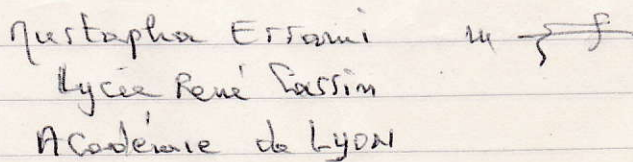 Mustapha Errami
Lycée René Cassin
Académie de LYON